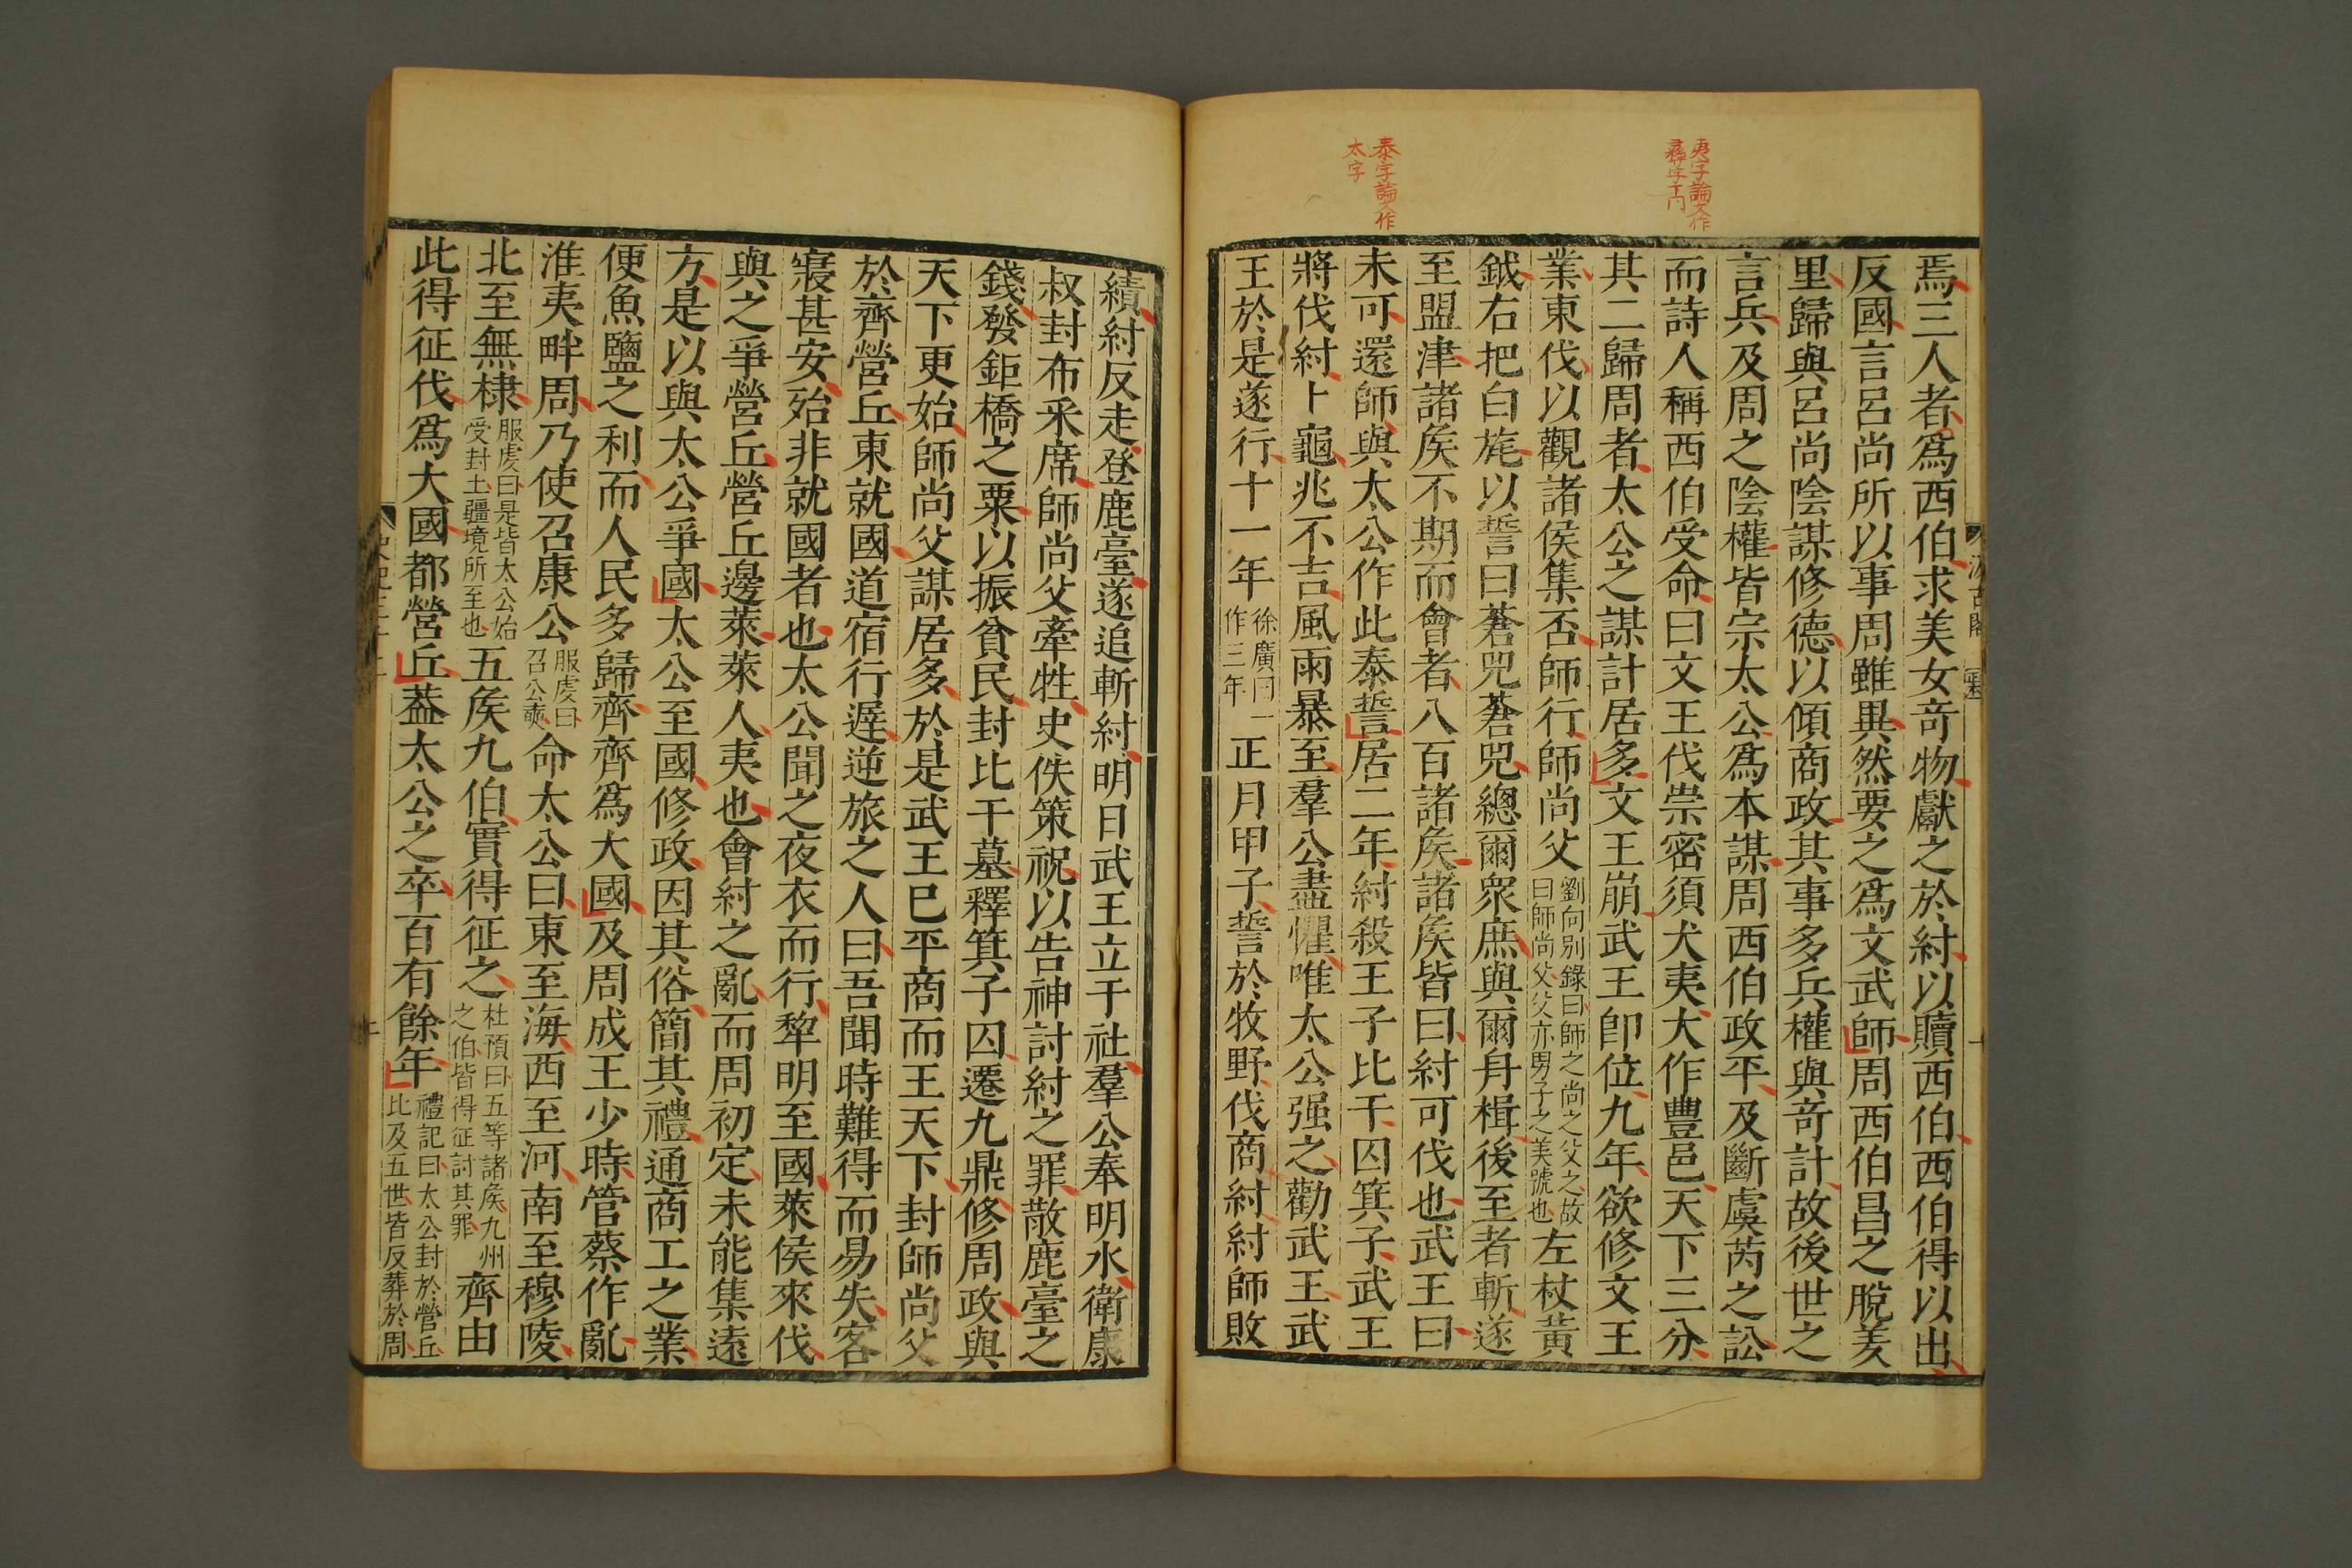 夷字論文作
彛字下门
泰字論文作
太字
汲古閣
焉三人者爲西伯求美女奇物獻之於紂以贖西伯西伯得以出
反國言呂尚所以事周雖異然要之爲文武師周西伯昌之脫羑
里歸與呂尚陰謀修德以傾商政其事多兵權與奇計故後世之
言兵及周之陰權皆宗太公爲本謀周西伯政平及斷虞芮之訟
而詩人稱西伯受命曰文王伐崇密須犬夷大作豐邑天下三分
其二歸周者太公之謀計居多文王崩武王卽位九年欲修文王
業東伐以觀諸侯集否師行師尚父劉向別錄曰師之尚之父之故曰師尚父父亦男子之美號也左杖黃
鉞右把白旄以誓曰蒼兕蒼兕總爾衆庶與爾舟楫後至者斬遂
至盟津諸矦不期而會者八百諸矦諸矦皆曰紂可伐也武王曰
未可還師與太公作此泰誓居二年紂殺王子比干囚箕子武王
將伐紂卜龜兆不吉風雨暴至羣公盡懼唯太公强之勸武王武
王於是遂行十一年徐廣曰一作三年正月甲子誓於牧野伐商紂紂師敗
績紂反走登鹿臺遂追斬紂明日武王立于社羣公奉明水衛康
叔封布采席師尚父牽牲史佚策祝以告神討紂之罪散鹿臺之
錢發鉅橋之粟以振貧民封比干墓釋箕子囚遷九鼎修周政與
天下更始師尚父謀居多於是武王已平商而王天下封師尚父
於齊營丘東就國道宿行遲逆旅之人曰吾聞時難得而易失客
寢甚安殆非就國者也太公聞之夜衣而行犂明至國萊侯來伐
與之爭營丘營丘邊萊萊人夷也會紂之亂而周初定未能集遠
方是以與太公爭國太公至國修政因其俗簡其禮通商工之業
便魚鹽之利而人民多歸齊齊爲大國及周成王少時管蔡作亂
淮夷畔周乃使召康公服虔曰召公奭命太公曰東至海西至河南至穆陵
北至無棣服虔曰是皆太公始受封土疆境所至也五矦九伯實得征之杜預曰五等諸矦九州之伯皆得征討其罪齊由
此得征伐爲大國都營丘葢太公之卒百有餘年禮記曰太公封於營丘比及五世皆反葬於周